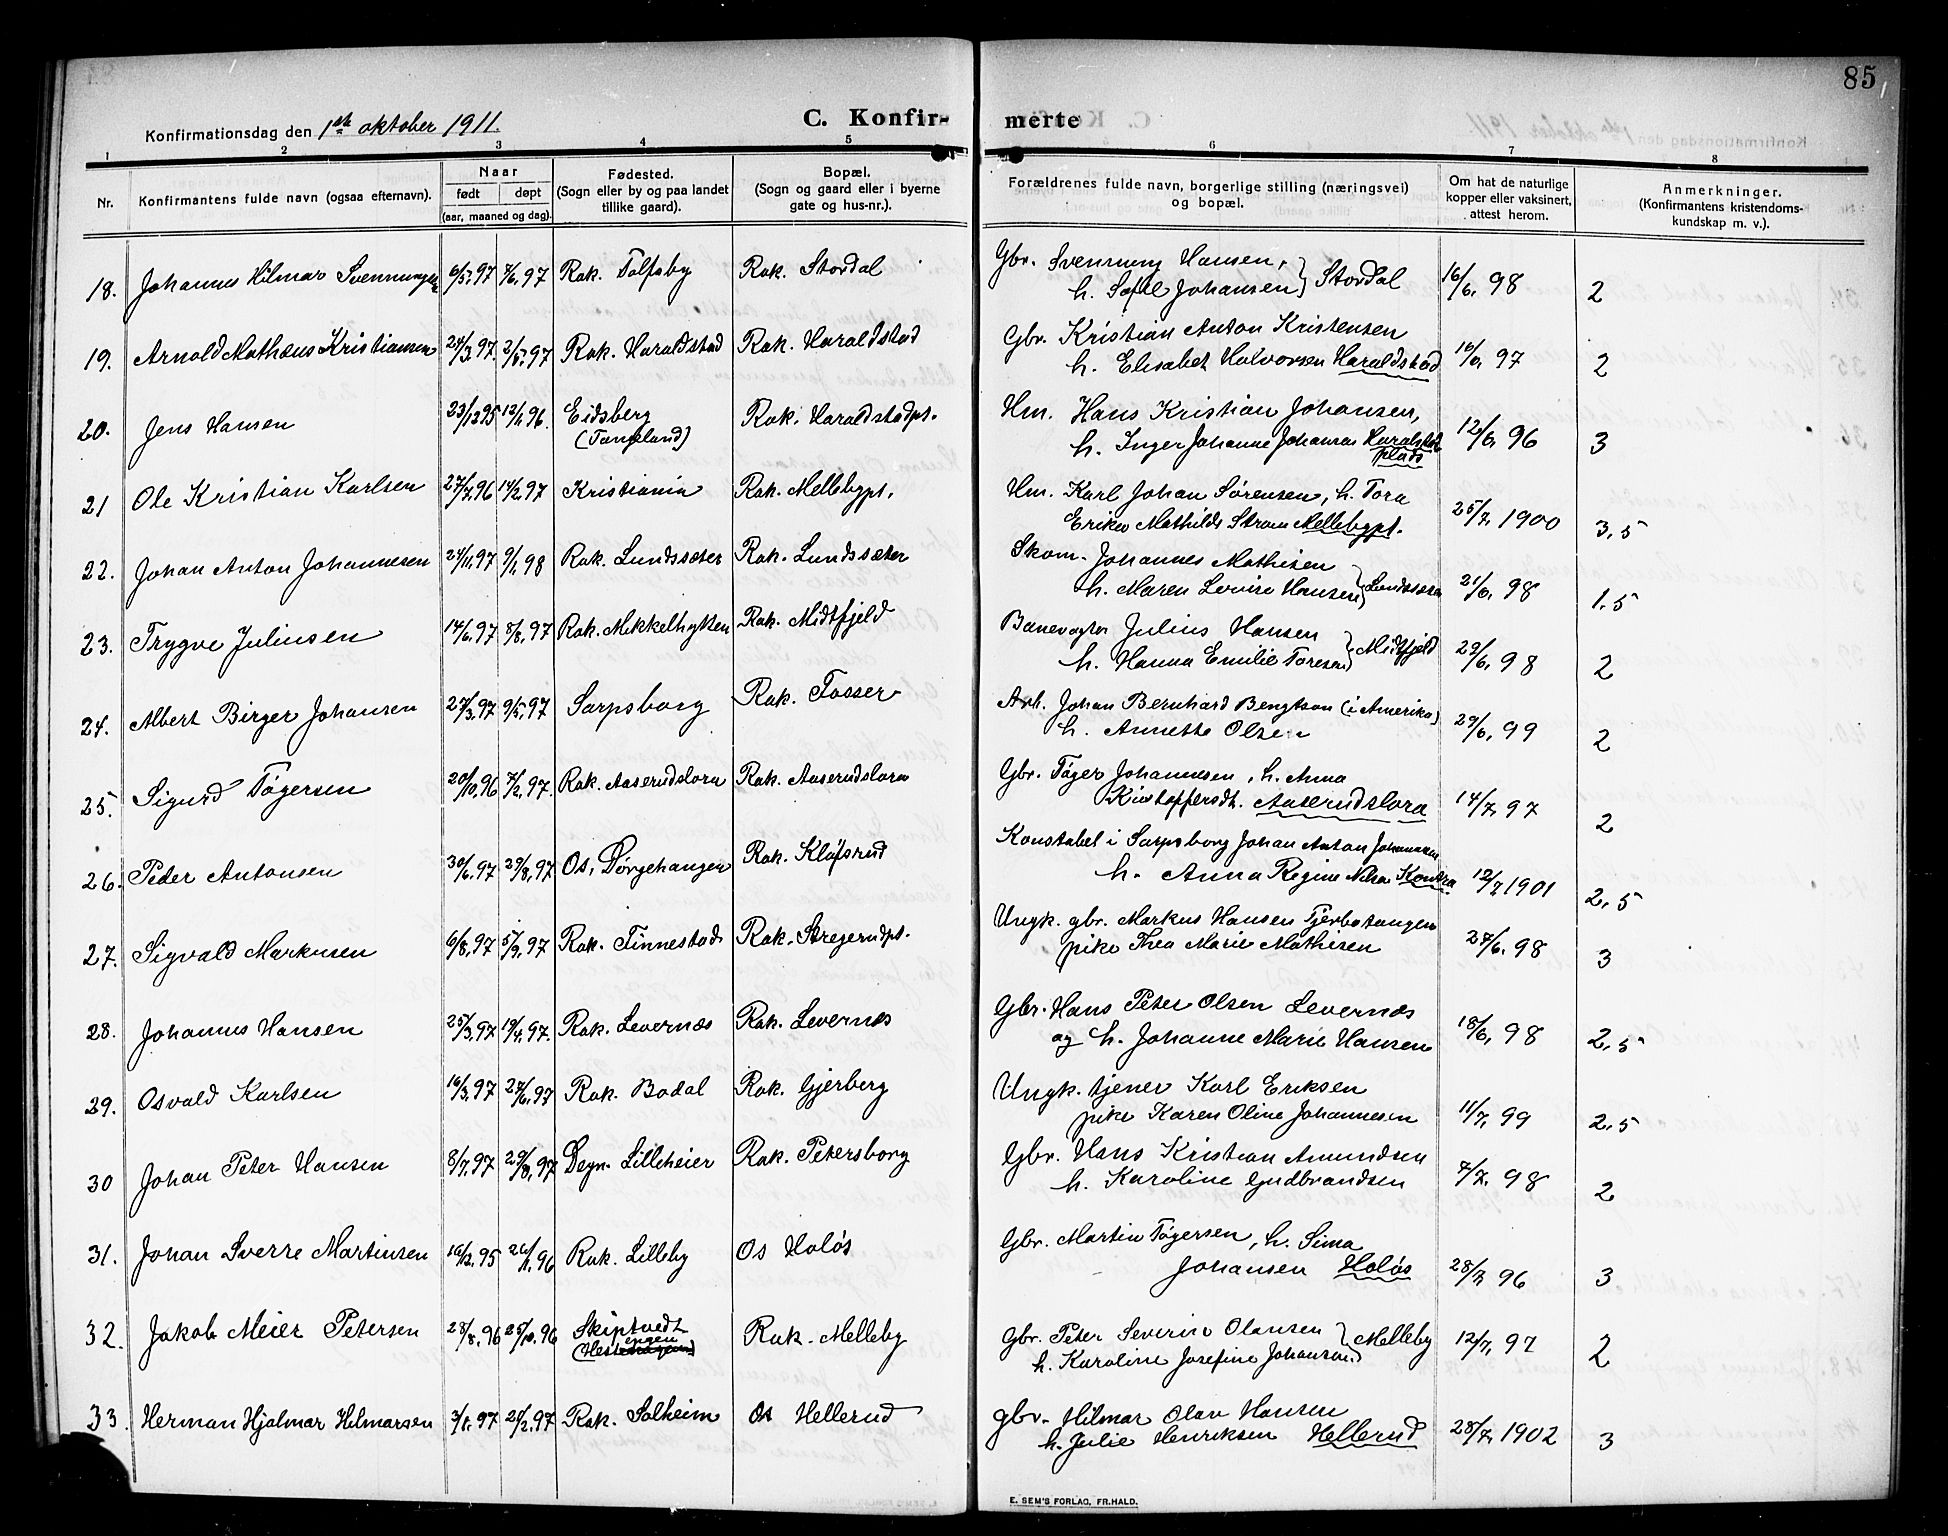 85
Konfirmationsdag den 1ste oktober 1911.
C. Konfirmerte
1 2 3 4 5 6 7 8
Nr. Konfirmantens fulde navn (ogsaa efternavn). Naar født døpt (aar, maaned og dag). Fødested. (Sogn eller by og paa landet tillike gaard). Bopæl. (Sogn og gaard eller i byerne gate og hus-nr.). Forældrenes fulde navn, borgerlige stilling (næringsvei) og bopæl. Om hat de naturlige kopper eller vaksinert, attest herom. Anmerkninger. (Konfirmantens kristendomskundskap m. v.).
18. Johannes Hilmar Svenningsen 6/5.97 7/6.97 Rak. Tolfsby Rak. Stordal Gbr. Svenning Hansen,
h. Sofie Johansen } Stordal 16/6, 98 2
19. Arnold Mathæus Kristiansen 24/3.97. 2/5.97 Rak. Haraldstad Rak. Haraldstad Gbr. Kristian Anton Kristensen
h. Elisabet Halvorsen Haraldstad 16/6, 97 2
20. Jens Hansen 23/12 95 12/1.96. Eidsberg (Tangeland) Rak. Haraldstadpt. Hm. Hans Kristian Johansen,
h. Inger Johanne Johansen Haraldstad plads 12/6, 96 3
21 Ole Kristian Karlsen 27/7.96 14/2.97 Kristiania Rak. Mellebypt. Hm. Karl Johan Sørensen, h. Tora
Erika Mathilde Strøm Mellebypt. 25/7, 1900 3,5
22. Johan Anton Johannesen 24/11.97 9/1.98 Rak. Lundssæter Rak. Lundssæter Skom. Johannes Mathisen
h. Maren Lovise Hansen } Lundssæter 21/6, 98 1,5
23. Trygve Juliussen 14/6.97 8/8.97 Rak. Mikkelhytten Rak. Midtfjeld Banevogter Julius Hansen
h. Hanna Emilie Toresen } Midtfjeld 29/6, 98 2
24. Albert Birger Johansen 27/3.97 9/5.97 Sarpsborg Rak. Fosser Arb. Johan Bernhard Bengtson (i Amerika)
h. Annette Olsen 29/6, 99 2
25. Sigurd Tøgersen 20/10.96 7/2.97. Rak. Aaserudslora Rak. Aaserudslora Gbr. Tøger Johannesen, h. Anna
Kristoffersdt. Aaserudslora 14/7, 97 2
26. Peder Antonsen 30/6.97 29/8.97 Os, Dørgehangen Rak. Kløfsrud Konstabel i Sarpsborg Johan Anton Johannesen
h. Anna Regine Nilsen 12/7 1901 2,5
27. Sigvald Markusen 6/8.97 5/9.97 Rak. Finnestad Rak. Stegerudpt. Ungk. gbr. Markus Hansen Tjerbotangen
pike Thea Marie Mathisen 27/6, 98 3
28. Johannes Hansen 25/3.97 19/4.97. Rak. Levernæs Rak. Levernæs Gbr. Hans Peter Olsen Levernæs
og h. Johanne Marie Hansen 18/6, 98 2,5
29. Osvald Karlsen 16/3.97 27/6.97 Rak. Bodal Rak. Gjerberg Ungk. tjener Karl Eriksen
pike Karen Oline Johannesen 11/7, 99 2,5
30 Johan Peter Hansen 8/7.97 29/8.97 Degn. Lilleheier Rak. Petersborg Gbr. Hans Kristian Amundsen
h. Karoline Gudbrandsen 7/7, 98 2
31. Johan Sverre Martinsen 16/12.95 26/1.96 Rak. Lilleby Os Holøs Gbr. Martin Tøgersen, h. Sima
Johansen Holøs 28/7 96 3
32. Jakob Meier Petersen 28/8.96 25/10.96 Skiptvedt (Hesteengen) Rak. Melleby Gbr. Peter Severin Olausen
h. Karoline Josefine Johansen } Melleby 12/7, 97 2
33. Herman Hjalmar Hilmarsen 3/1.97 21/2.97 Rak. Solheim Os Hellerud Gbr. Hilmar Olav Hansen
h. Julie Henriksen Hellerud 28/7, 1902 3
E. SEM'S FORLAG, FR.HALD.